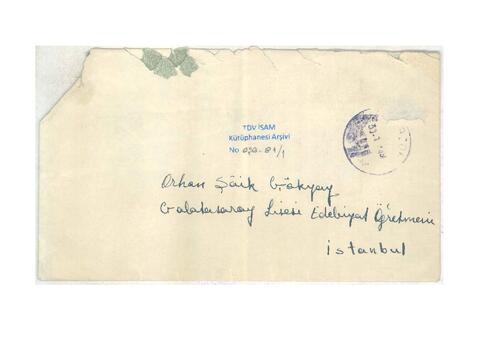 TDV İSAM
Kütüphanesi Arşivi
No
Orhan Şâik Gökyay
Galatasaray Lisesi Edebiyat Öğretmeni
İstanbul